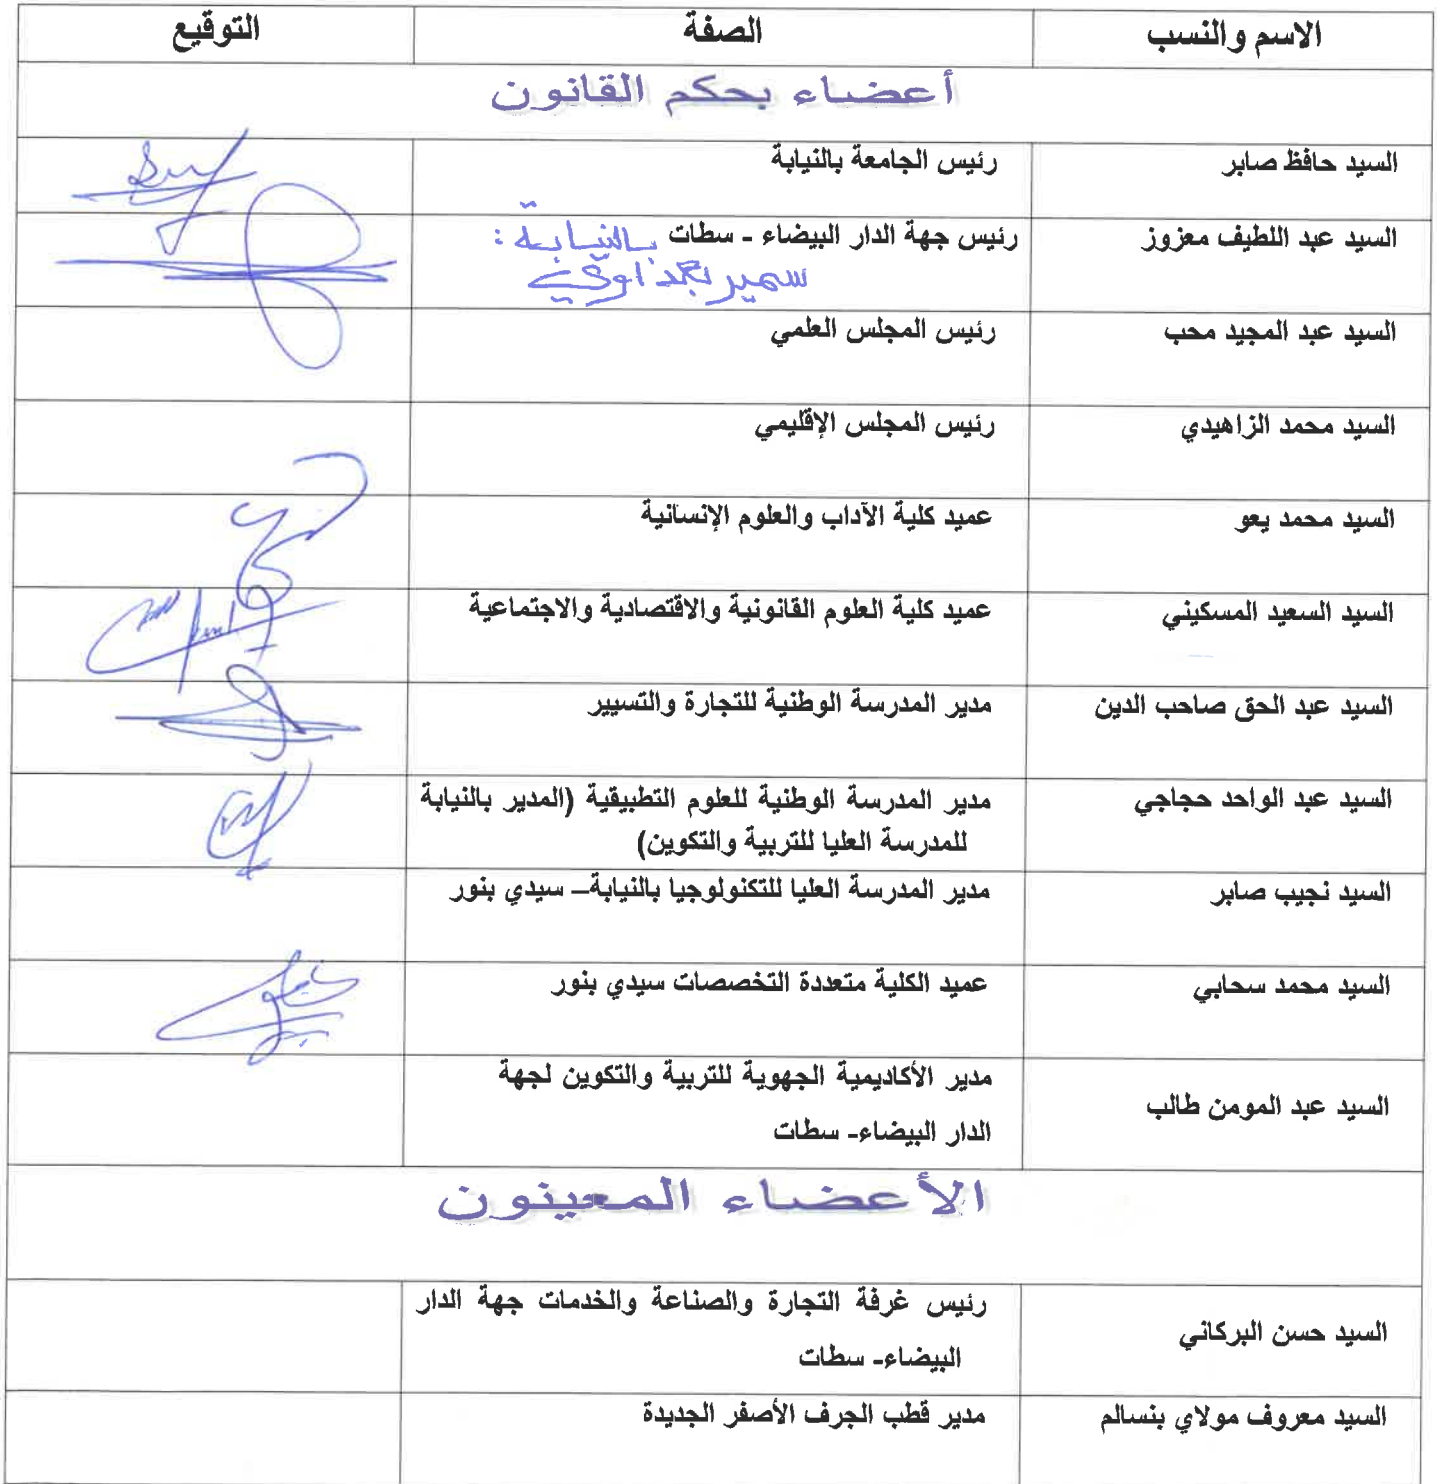 الاسم والنسب الصفة التوقيع
أعضاء بحكم القانون
السيد حافظ صابر رئيس الجامعة بالنيابة
السيد عبد اللطيف معزوز رئيس جهة الدار البيضاء - سطات بالنيابة :
سمير
السيد عبد المجيد محب رئيس المجلس العلمي
السيد محمد الزاهيدي رئيس المجلس الإقليمي
السيد محمد يعو عميد كلية الآداب والعلوم الإنسانية
السيد السعيد المسكيني عميد كلية العلوم القانونية والاقتصادية والاجتماعية
السيد عبد الحق صاحب الدين مدير المدرسة الوطنية للتجارة والتسيير
السيد عبد الواحد حجاجي مدير المدرسة الوطنية للعلوم التطبيقية (المدير بالنيابة
للمدرسة العليا للتربية والتكوين)
السيد نجيب صابر مدير المدرسة العليا للتكنولوجيا بالنيابة– سيدي بنور
السيد محمد سحابي عميد الكلية متعددة التخصصات سيدي بنور
السيد عبد المومن طالب مدير الأكاديمية الجهوية للتربية والتكوين لجهة
الدار البيضاء- سطات
الأعضاء المعينون
السيد حسن البركاني رئيس غرفة التجارة والصناعة والخدمات جهة الدار
البيضاء- سطات
السيد معروف مولاي بنسالم مدير قطب الجرف الأصفر الجديدة